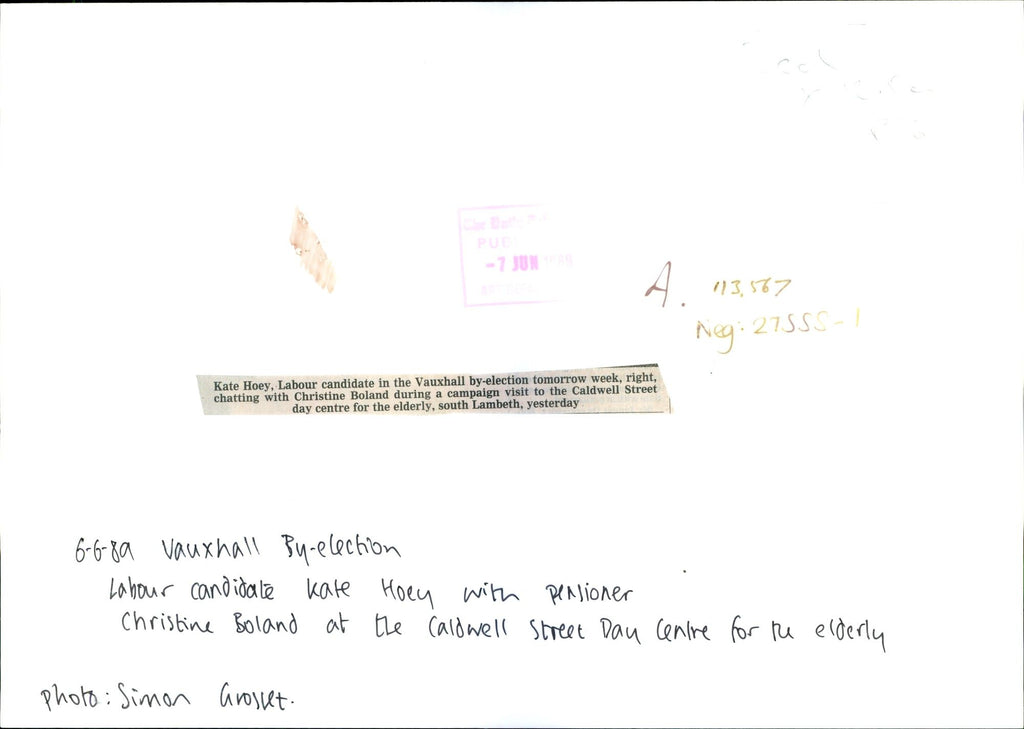 The Daily
PUB
-7 JUN 1989
A. 113,567
Neg: 27555-1
Kate Hoey, Labour candidate in the Vauxhall by-election tomorrow week, right,
chatting with Christine Boland during a campaign visit to the Caldwell Street
day centre for the elderly, south Lambeth, yesterday
6-6-89 Vauxhall By-election
Labour candidate Kate Hoey with pensioner
Christine Boland at the Caldwell Street Day Centre for the elderly
Photo: Simon Grosset.